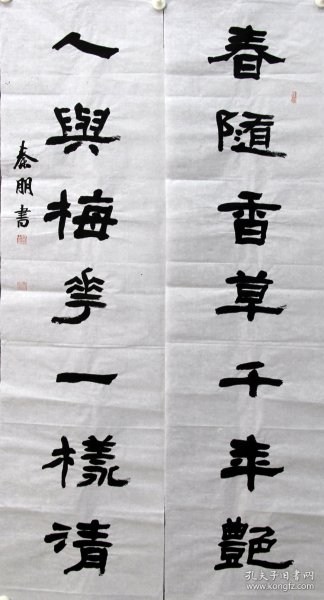 春隨香草千年艷
人與梅花一樣清
秦朋書
孔夫子旧书网
www.kongfz.com